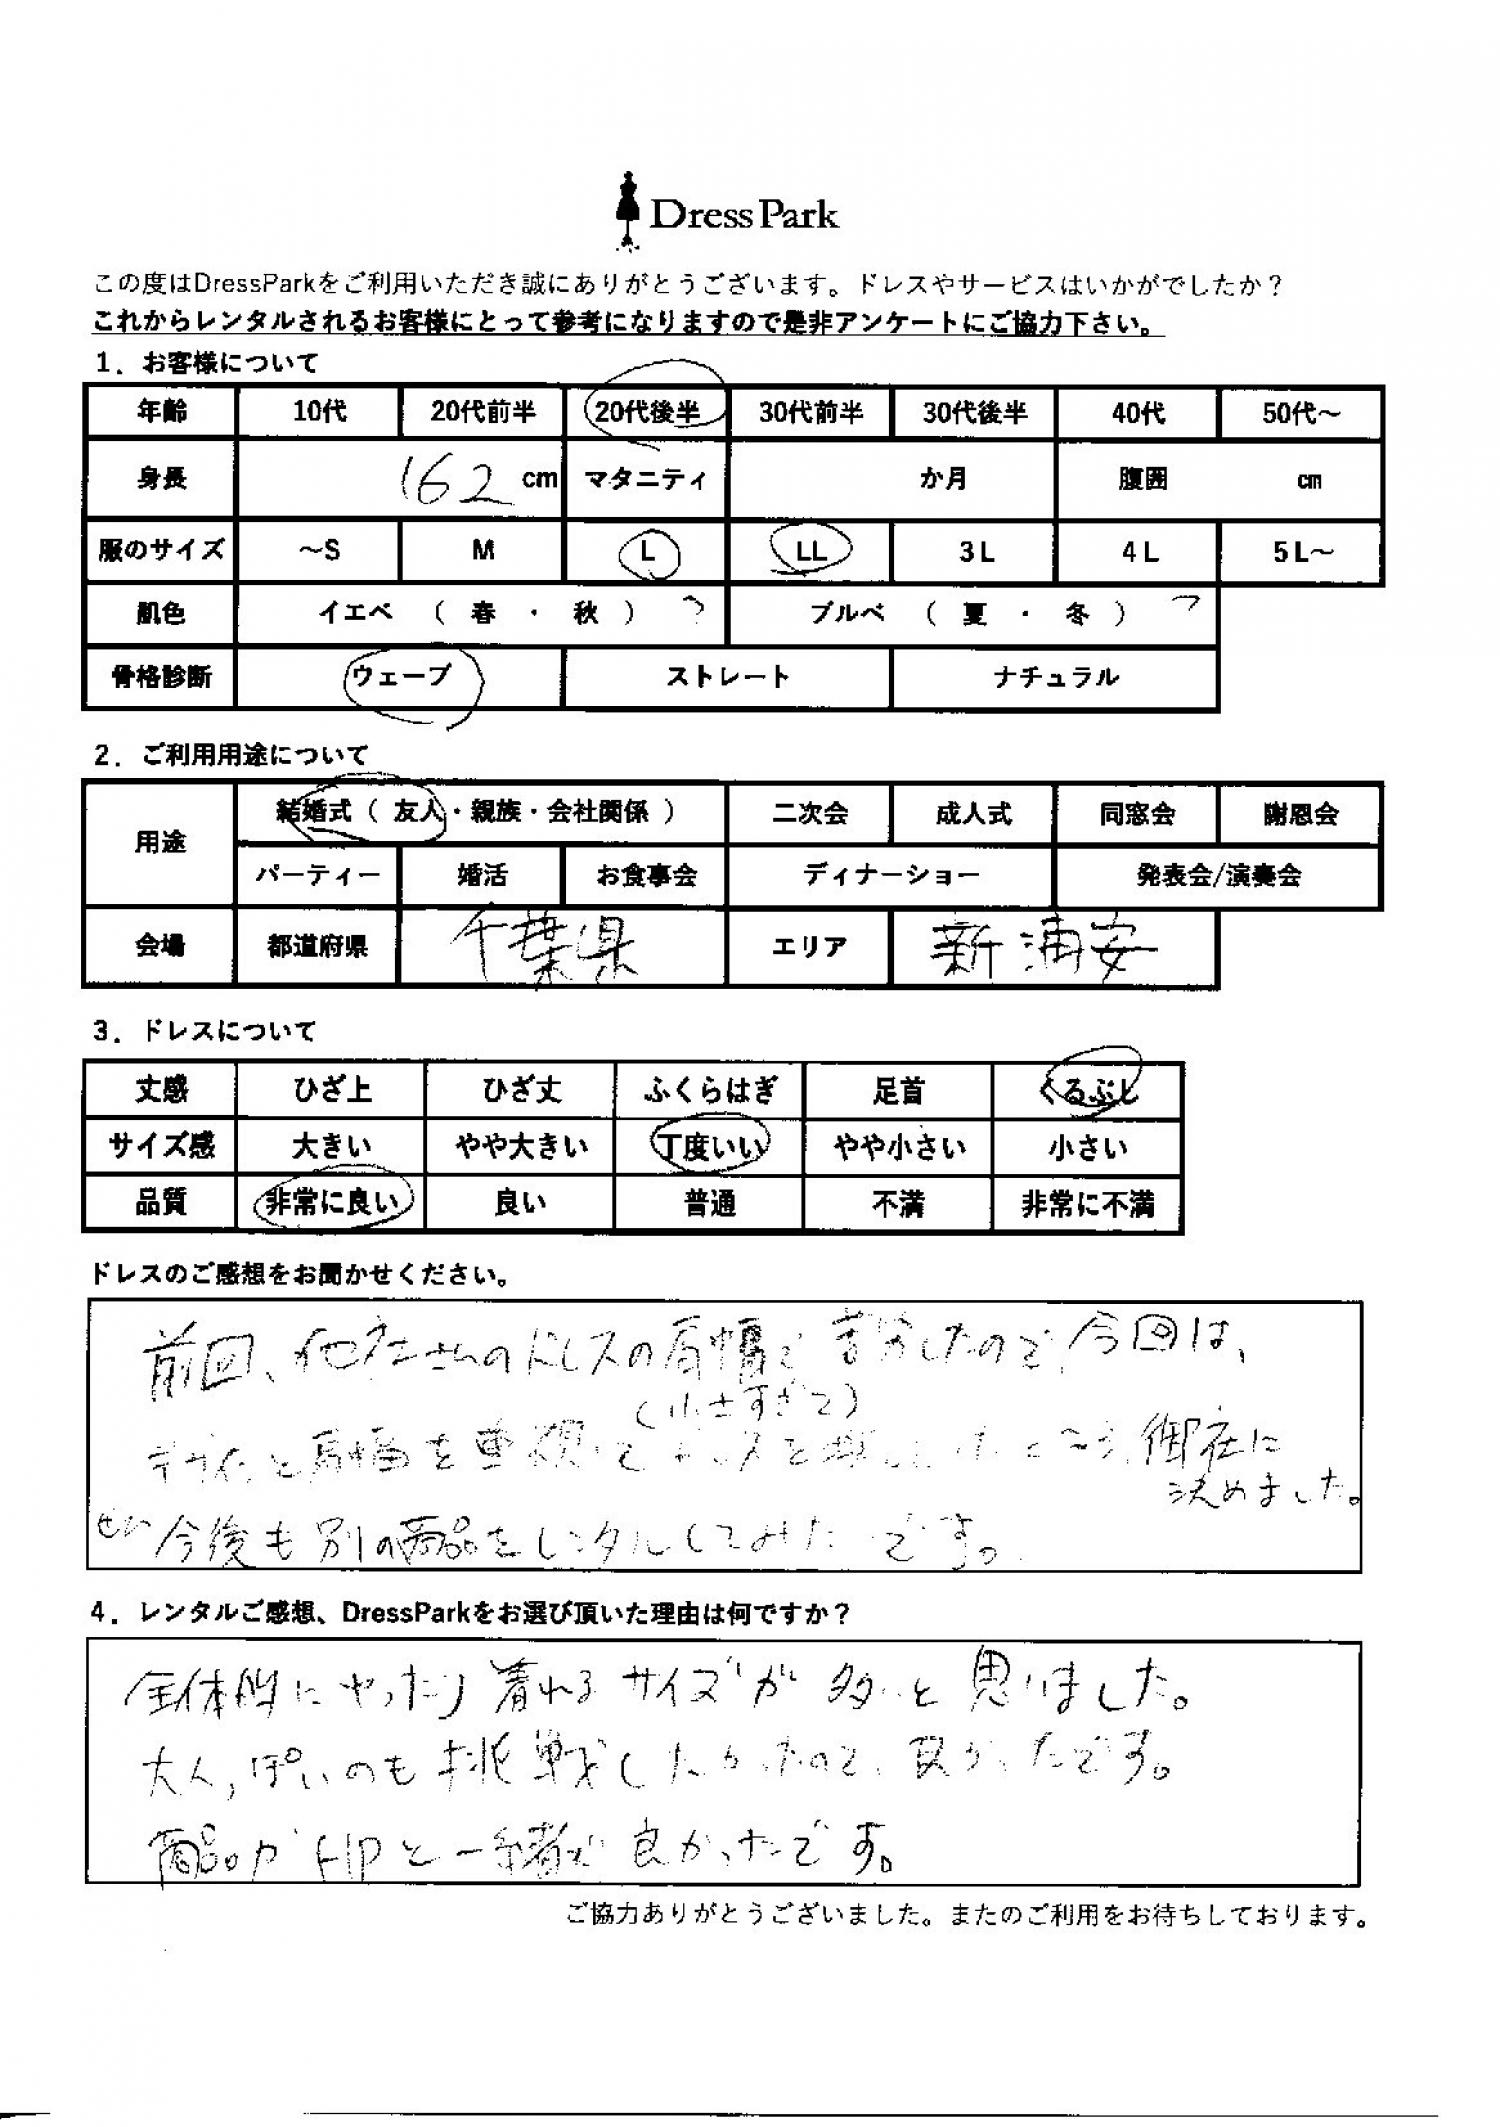 Dress Park
この度はDressParkをご利用いただき誠にありがとうございます。ドレスやサービスはいかがでしたか？
これからレンタルされるお客様にとって参考になりますので是非アンケートにご協力下さい。
1．お客様について
年齢 10代 20代前半 20代後半 30代前半 30代後半 40代 50代～
身長 162 cm マタニティ か月 腹囲 cm
服のサイズ ～S M L LL 3L 4L 5L～
肌色 イエベ （ 春 ・ 秋 ） ? ブルベ （ 夏 ・ 冬 ） ?
骨格診断 ウェーブ ストレート ナチュラル
2．ご利用用途について
用途 結婚式（ 友人・親族・会社関係 ） 二次会 成人式 同窓会 謝恩会
パーティー 婚活 お食事会 ディナーショー 発表会/演奏会
会場 都道府県 千葉県 エリア 新浦安
3．ドレスについて
丈感 ひざ上 ひざ丈 ふくらはぎ 足首 くるぶし
サイズ感 大きい やや大きい 丁度いい やや小さい 小さい
品質 非常に良い 良い 普通 不満 非常に不満
ドレスのご感想をお聞かせください。
前回、他社さんのドレスの肩幅で苦労したので、今回は、
（小さすぎて）
と肩幅を重視して ドレスを ところ、御社に
決めました。
ぜひ今後も別の商品をレンタルしてみたいです。
4．レンタルご感想、DressParkをお選び頂いた理由は何ですか？
全体的にゆったり着れるサイズが多いと思いました。
大人っぽいのも挑戦したかったので、良かったです。
商品がHPと一緒で良かったです。
ご協力ありがとうございました。またのご利用をお待ちしております。